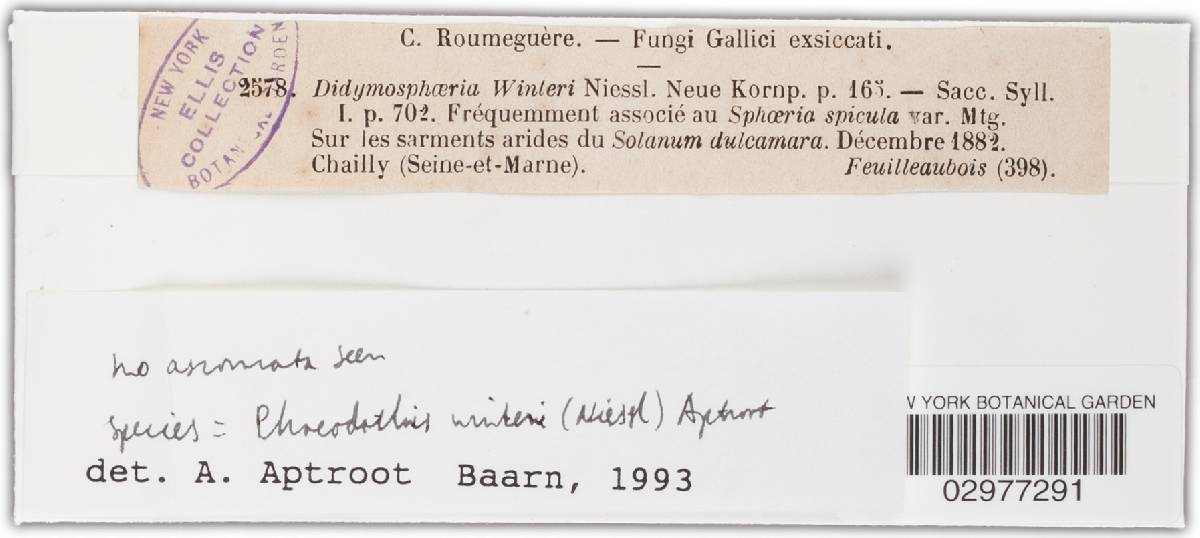 C. Roumeguère. — Fungi Gallici exsiccati.
NEW YORK
ELLIS
COLLECTION
BOTANICAL GARDEN
2578. Didymosphœria Winteri Niessl. Neue Kornp. p. 165. — Sacc. Syll.
I. p. 702. Fréquemment associé au Sphœria spicula var. Mtg.
Sur les sarments arides du Solanum dulcamara. Décembre 1882.
Chailly (Seine-et-Marne). Feuilleaubois (398).
no ascomata seen
species = Phaeodothis winteri (Niessl) Aptroot
det. A. Aptroot Baarn, 1993
W YORK BOTANICAL GARDEN
02977291